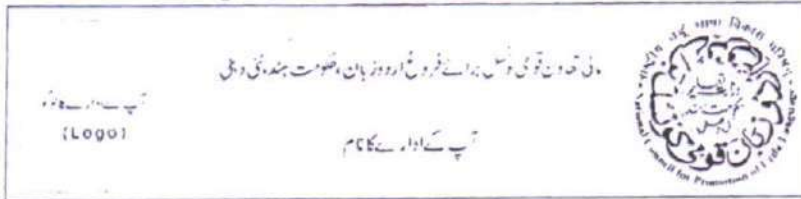 مالی تعاون قومی کونسل برائے فروغ اردو زبان، حکومت ہند، نئی دہلی
آپ کے ادارے کا نام
آپ کے ادارے کا لوگو
(Logo)
राष्ट्रीय उर्दू भाषा विकास परिषद
National Council for Promotion of Urdu Language